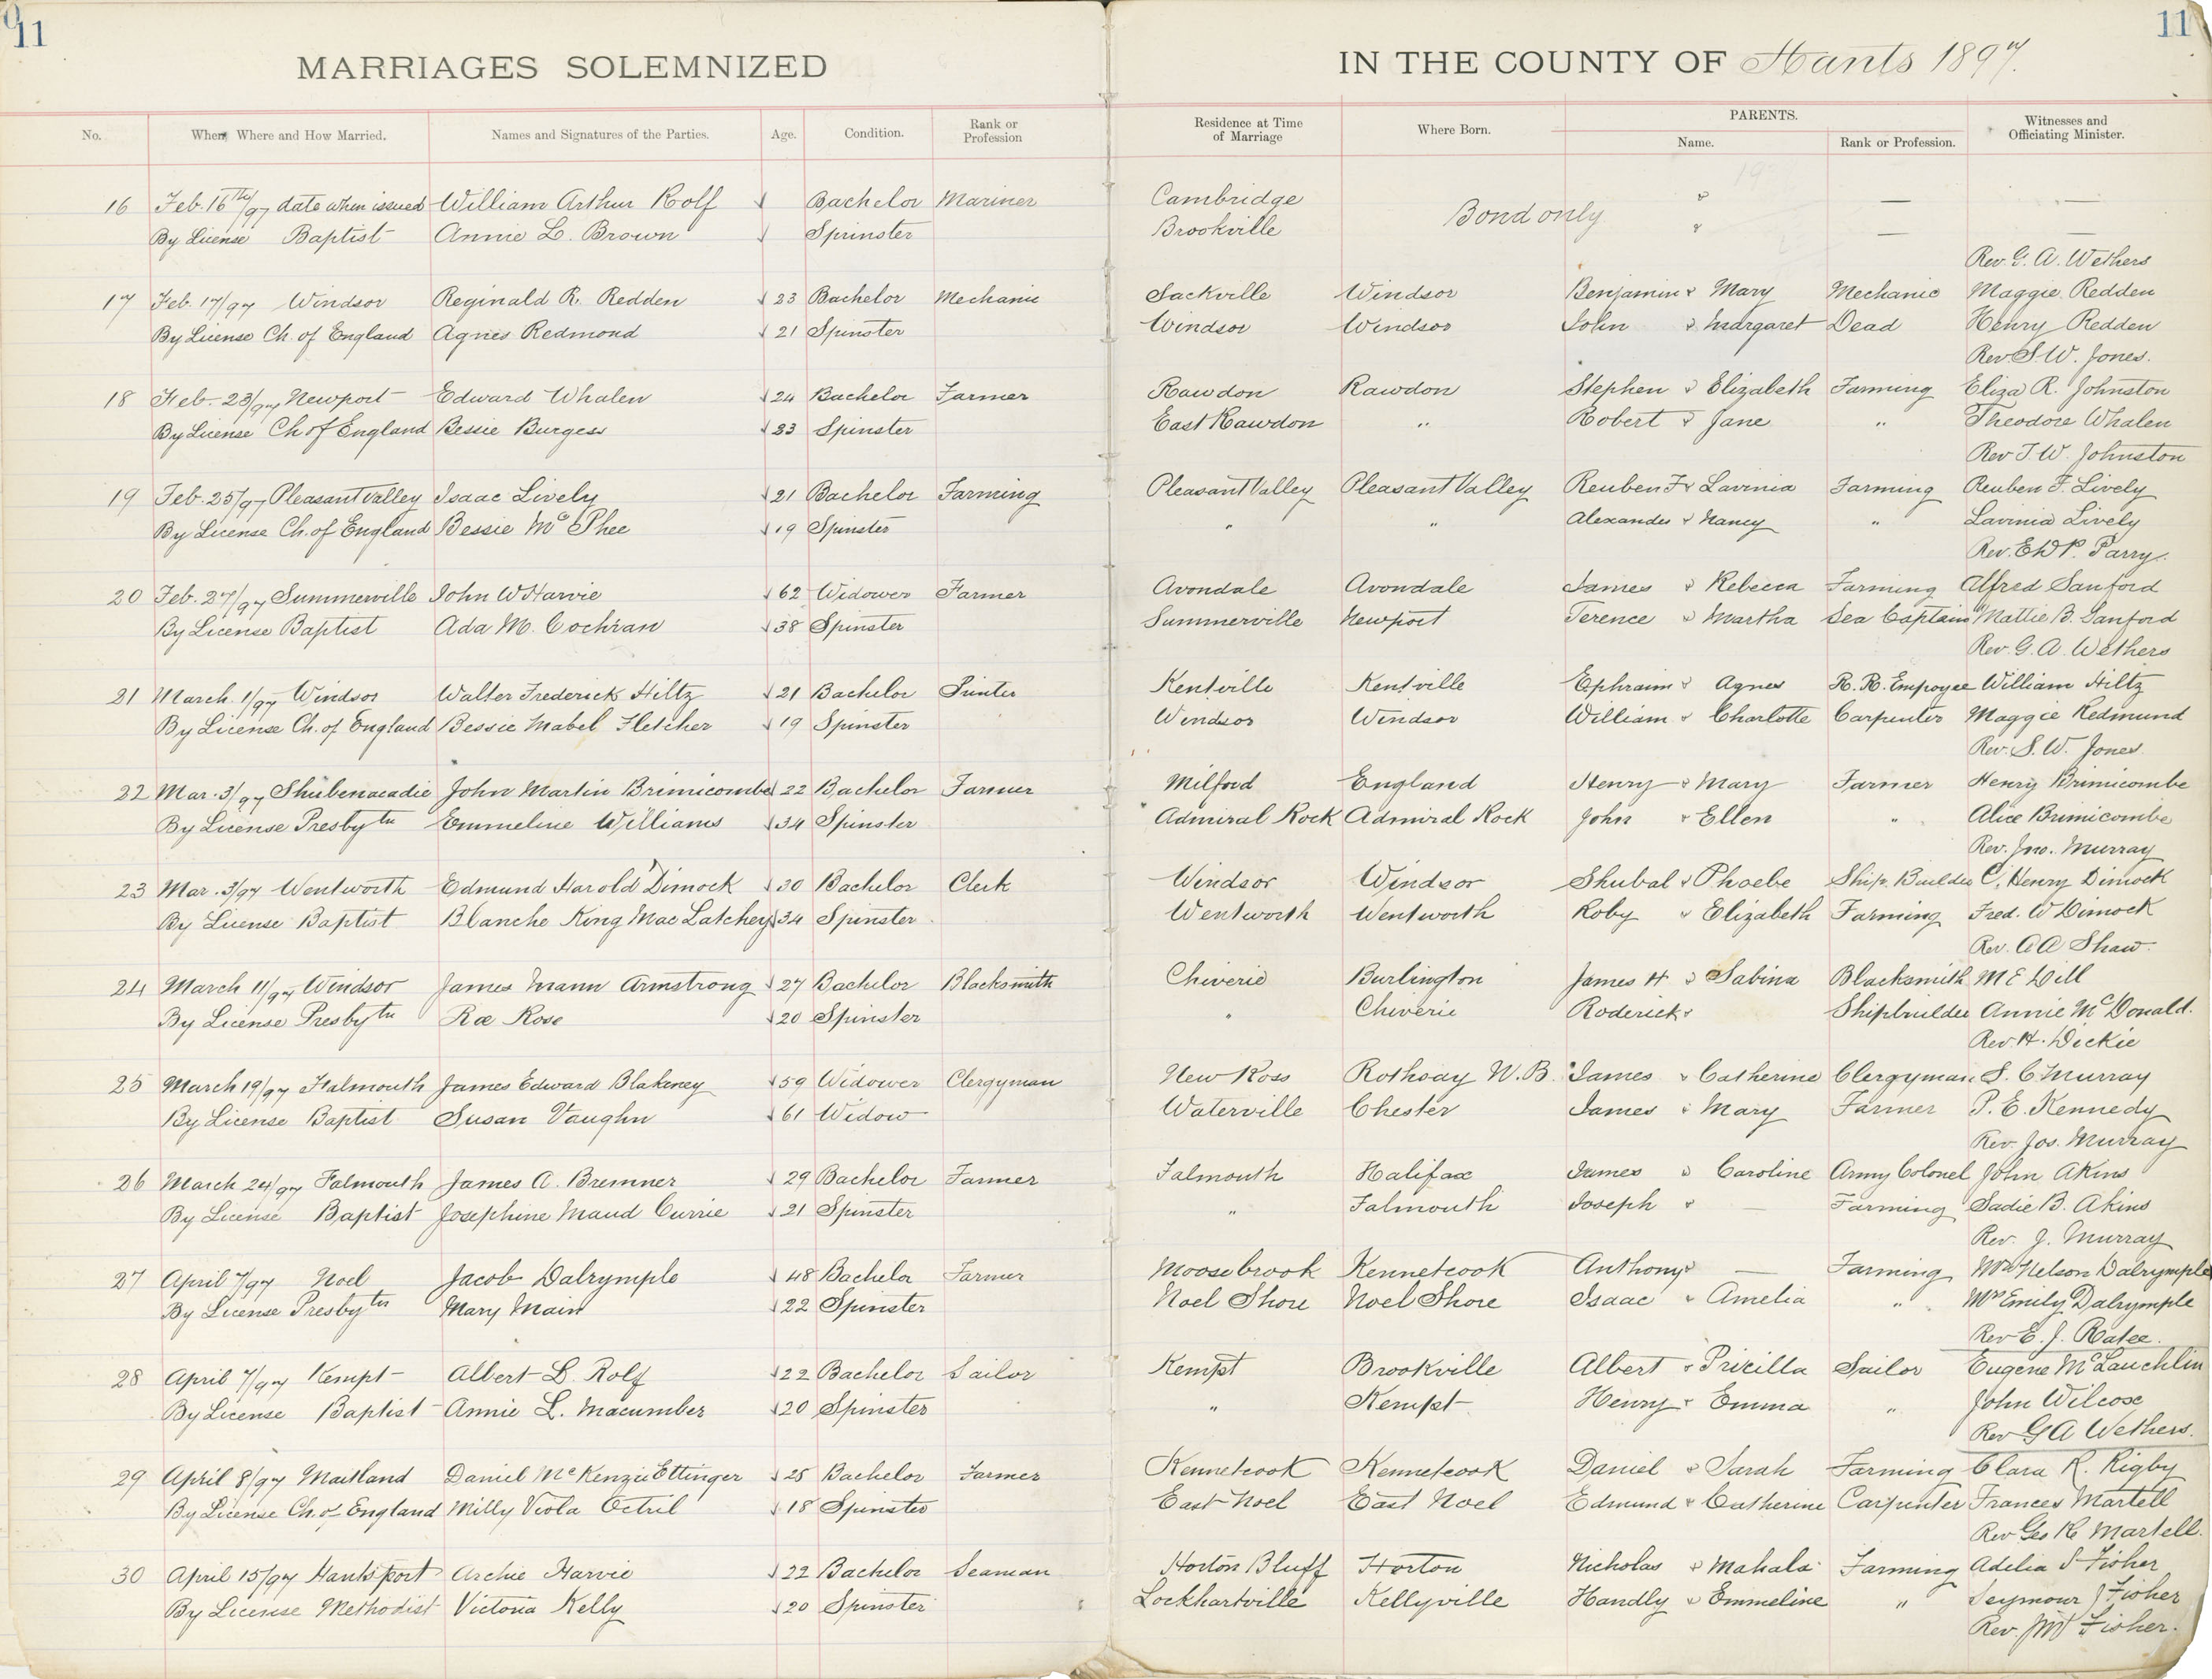 11
11
MARRIAGES SOLEMNIZED IN THE COUNTY OF Hants 1897.
No. When, Where and How Married. Names and Signatures of the Parties. Age. Condition. Rank or Profession Residence at Time of Marriage Where Born. PARENTS. Name. Rank or Profession. Witnesses and Officiating Minister.
16 Feb. 16th/97 date when issued William Arthur Rolf Bachelor Mariner Cambridge Bond only " — —
By License Baptist Annie L. Brown Sprinster Brookville " — —
Rev. G. A. Wethers
17 Feb. 17/97 Windsor Reginald R. Redden 23 Bachelor Mechanic Sackville Windsor Benjamin & Mary Mechanic Maggie Redden
By License Ch. of England Agnes Redmond 21 Spinster Windsor Windsor John & Margaret Dead Henry Redden
Rev S. W. Jones.
18 Feb. 23/97 Newport Edward Whalen 24 Bachelor Farmer Rawdon Rawdon Stephen & Elizabeth Farming Eliza R. Johnston
By License Ch of England Bessie Burgess 23 Spinster East Rawdon " Robert & Jane " Theodore Whalen
Rev T. W. Johnston
19 Feb. 25/97 Pleasant Valley Isaac Lively 21 Bachelor Farming Pleasant Valley Pleasant Valley Reuben F & Lavinia Farming Reuben F. Lively
By License Ch. of England Bessie McPhee 19 Spinster " " Alexander & Nancy " Lavinia Lively
Rev. E W P. Parry.
20 Feb. 27/97 Summerville John W Harvie 62 Widower Farmer Avondale Avondale James & Rebecca Farming Alfred Sanford
By License Baptist Ada M. Cochran 38 Spinster Summerville Newport Terence & Martha Sea Captain Mattie B. Sanford
Rev. G. A. Wethers
21 March 1/97 Windsor Walter Frederick Hiltz 21 Bachelor Printer Kentville Kentville Ephraim & Agnes R. R. Empoyee William Hiltz
By License Ch. of England Bessie Mabel Fletcher 19 Spinster Windsor Windsor William & Charlotte Carpenter Maggie Redmund
Rev. S. W. Jones
22 Mar. 3/97 Shubenacadie John Martin Brimicombe 22 Bachelor Farmer Milford England Henry & Mary Farmer Henry Brimicombe
By License Presbytn Emmeline Williams 34 Spinster Admiral Rock Admiral Rock John & Ellen " Alice Brimicombe
Rev. Jno. Murray
23 Mar. 3/97 Wentworth Edmund Harold Dimock 30 Bachelor Clerk Windsor Windsor Shubal & Phoebe Ship. Builder C. Henry Dimock
By License Baptist Blanche King MacLatchey 34 Spinster Wentworth Wentworth Roby & Elizabeth Farming Fred. W Dimock
Rev. A A Shaw.
24 March 11/97 Windsor James Mann Armstrong 27 Bachelor Blacksmith Chiverie Burlington James H & Sabina Blacksmith M E Dill
By License Presbytn Rae Rose 20 Spinster " Chiverie Roderick & Shipbuilder Annie McDonald.
Rev. H. Dickie
25 March 19/97 Falmouth James Edward Blakeney 59 Widower Clergyman New Ross Rothsay N. B. James & Catherine Clergyman S. C. Murray
By License Baptist Susan Vaughn 61 Widow Waterville Chester James & Mary Farmer P. E. Kennedy
Rev. Jos. Murray
26 March 24/97 Falmouth James A. Bremner 29 Bachelor Farmer Falmouth Halifax James & Caroline Army Colonel John Akins
By License Baptist Josephine Maud Currie 21 Spinster " Falmouth Joseph & — Farming Sadie B. Akins
Rev. J. Murray
27 April 7/97 Noel Jacob Dalrymple 48 Bachelor Farmer Moosebrook Kennetcook Anthony & — Farming Mrs Nelson Dalrymple
By License Presbytn Mary Main 22 Spinster Noel Shore Noel Shore Isaac & Amelia " Mrs Emily Dalrymple
Rev E. J. Ratee.
28 April 7/97 Kempt Albert L. Rolf 22 Bachelor Sailor Kempt Brookville Albert & Pricilla Sailor Eugene McLauchlin
By License Baptist Annie L. Macumber 20 Spinster " Kempt Henry & Emma " John Wilcox
Rev G A Wethers.
29 April 8/97 Maitland Daniel McKenzie Ettinger 25 Bachelor Farmer Kennetcook Kennetcook Daniel & Sarah Farming Clara R. Rigby
By License Ch. of England Milly Viola Oetril 18 Spinster East Noel East Noel Edmund & Catherine Carpenter Frances Martell
Rev Geo R Martell.
30 April 15/97 Hantsport Archie Harvie 22 Bachelor Seaman Horton Bluff Horton Nicholas & Mahala Farming Adelia S Fisher
By License Methodist Victoria Kelly 20 Spinster Lockhartville Kellyville Handly & Emmeline " Seymour J Fisher
Rev. J M Fisher.